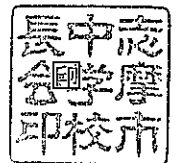 志摩市
中学校
長会印
印